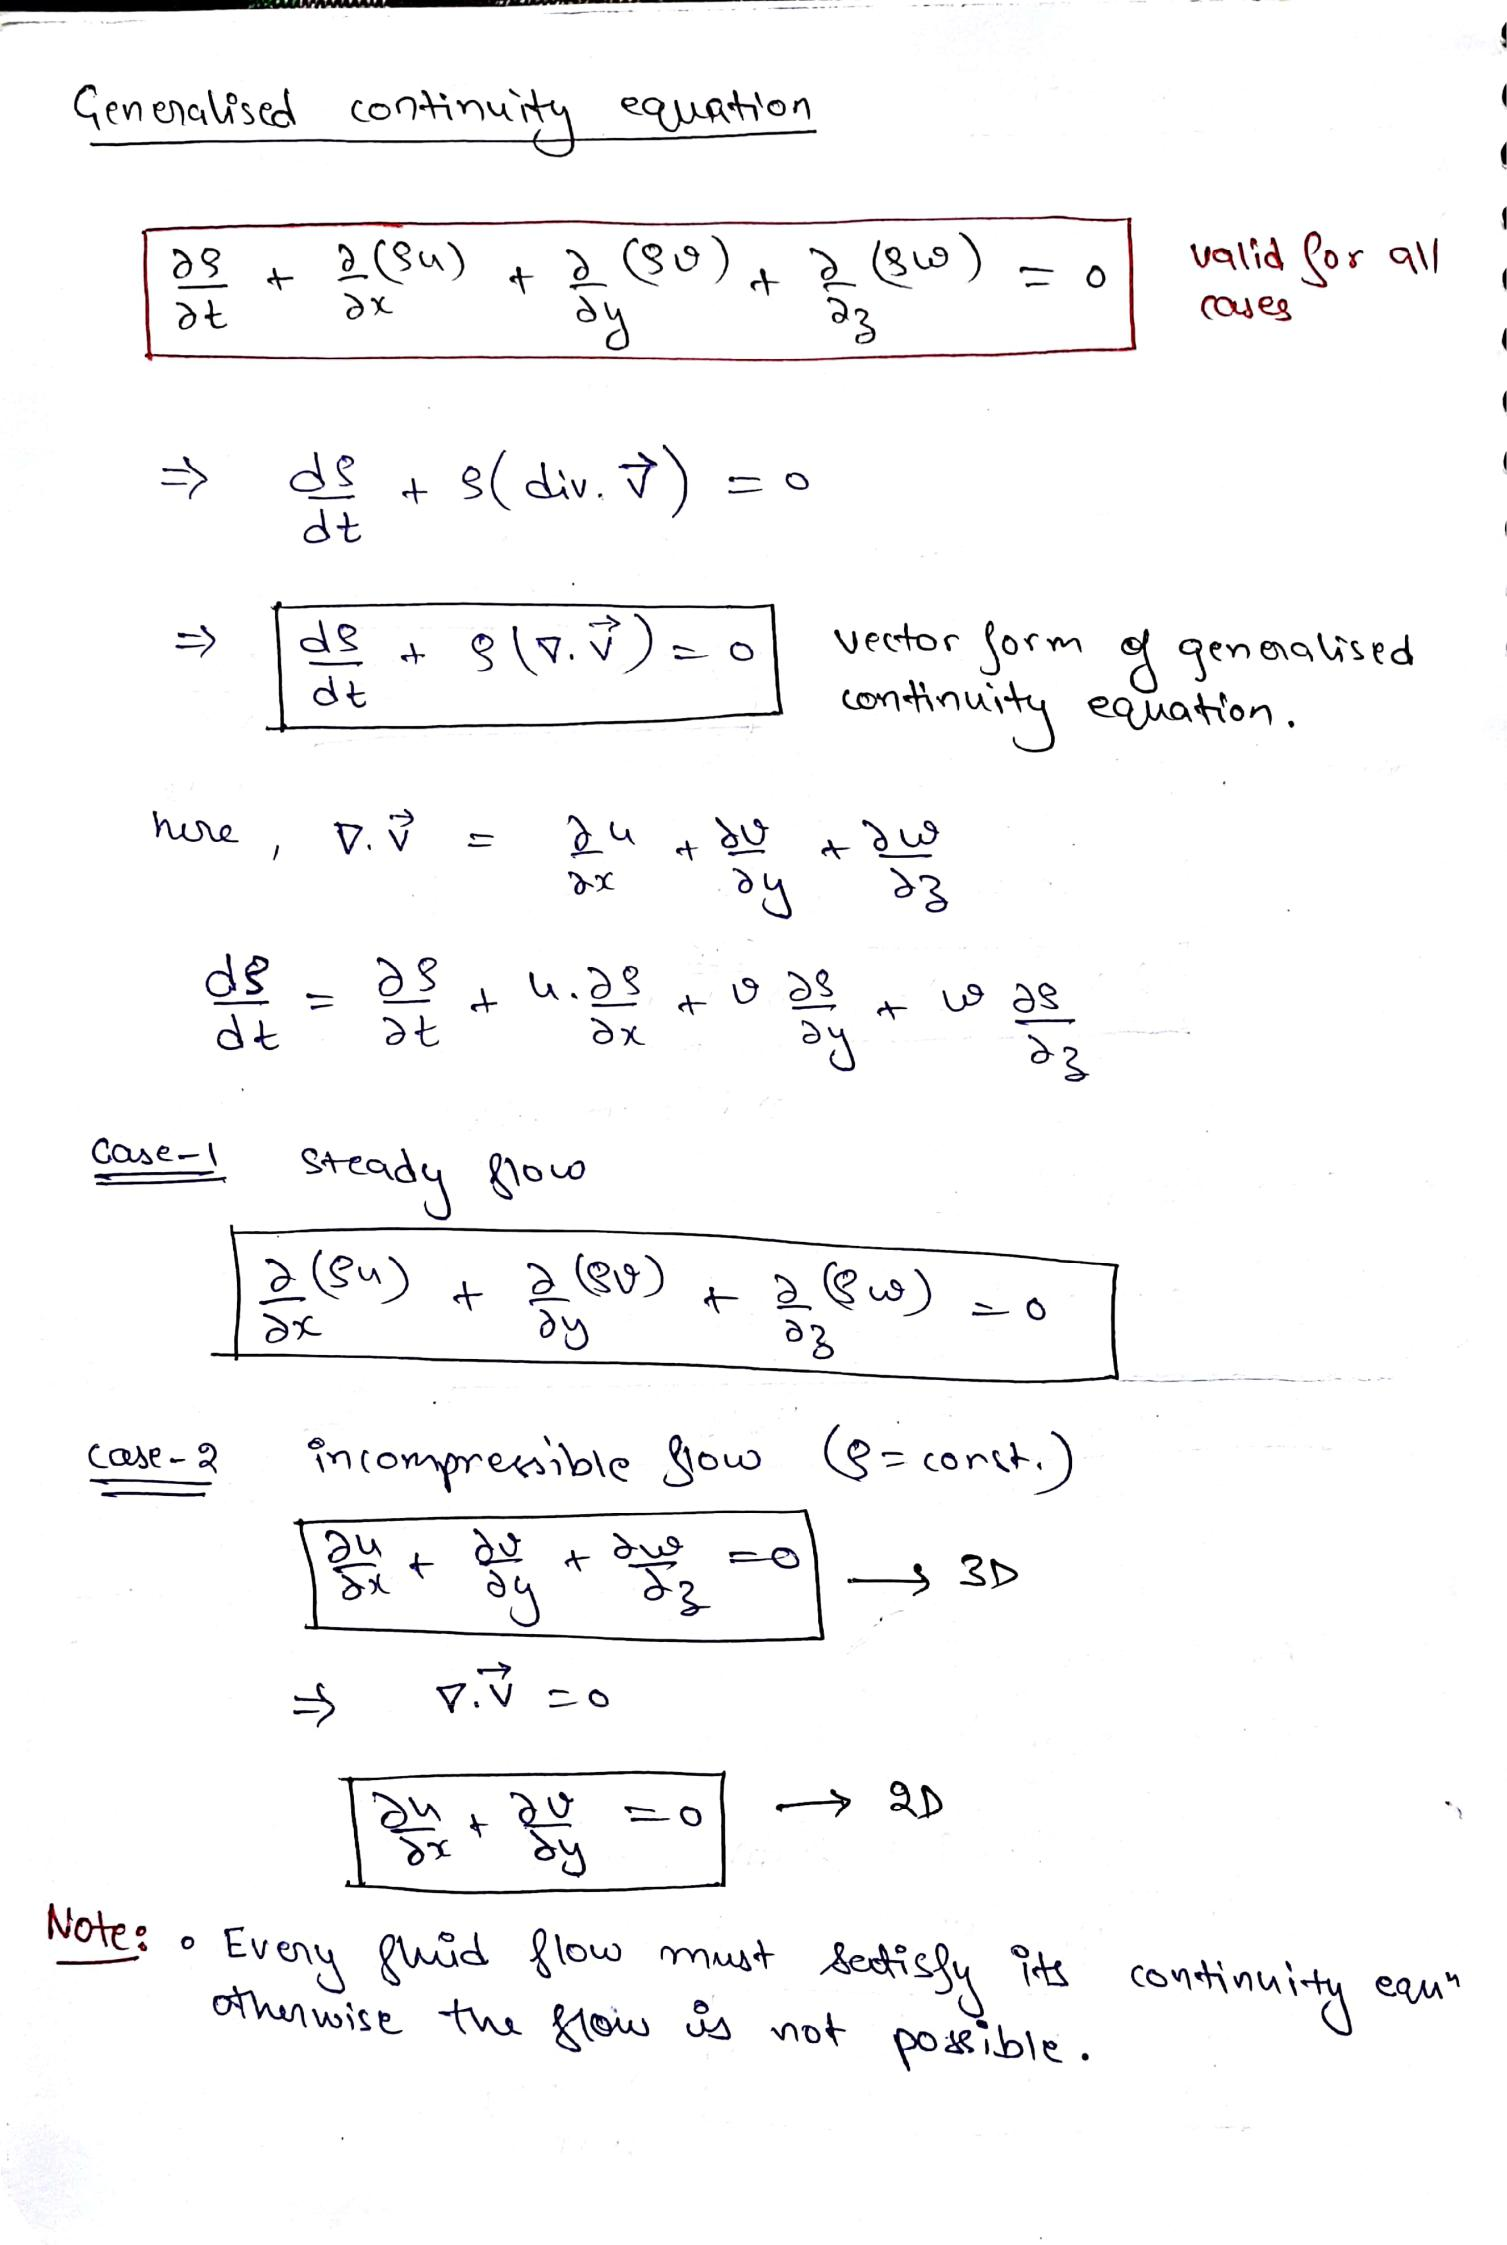 Generalised continuity equation
∂ρ/∂t + ∂/∂x (ρu) + ∂/∂y (ρv) + ∂/∂z (ρw) = 0 valid for all
cases
⇒ dρ/dt + ρ(div. V⃗) = 0
⇒ dρ/dt + ρ(∇. V⃗) = 0 vector form of generalised
continuity equation.
here, ∇. V⃗ = ∂u/∂x + ∂v/∂y + ∂w/∂z
dρ/dt = ∂ρ/∂t + u. ∂ρ/∂x + v ∂ρ/∂y + w ∂ρ/∂z
Case-1 steady flow
∂/∂x (ρu) + ∂/∂y (ρv) + ∂/∂z (ρw) = 0
case-2 incompressible flow (ρ = const.)
∂u/∂x + ∂v/∂y + ∂w/∂z = 0 → 3D
⇒ ∇. V⃗ = 0
∂u/∂x + ∂v/∂y = 0 → 2D
Note: • Every fluid flow must satisfy its continuity equⁿ
otherwise the flow is not possible.